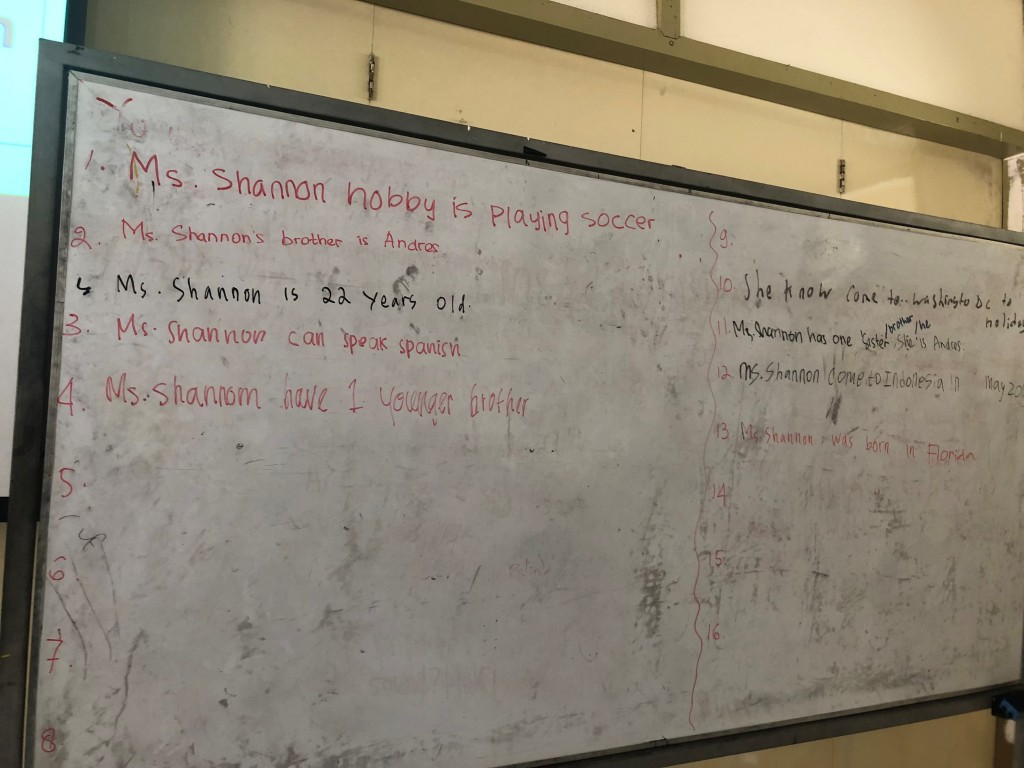 1. Ms. Shannon hobby is playing soccer
2. Ms. Shannon's brother is Andros
Ms. Shannon is 22 years old.
3. Ms. Shannon can speak spanish
4. Ms. Shannom have 1 younger brother
5.
6
7
8
9.
10. She know come to washingto DC to
holiday
brother / he
11. Ms, Shannon has one sister She is Andros
12. Ms. Shannon come to Indonesia in may 20
13 Ms. Shannon was born in Florida
14
15.
16